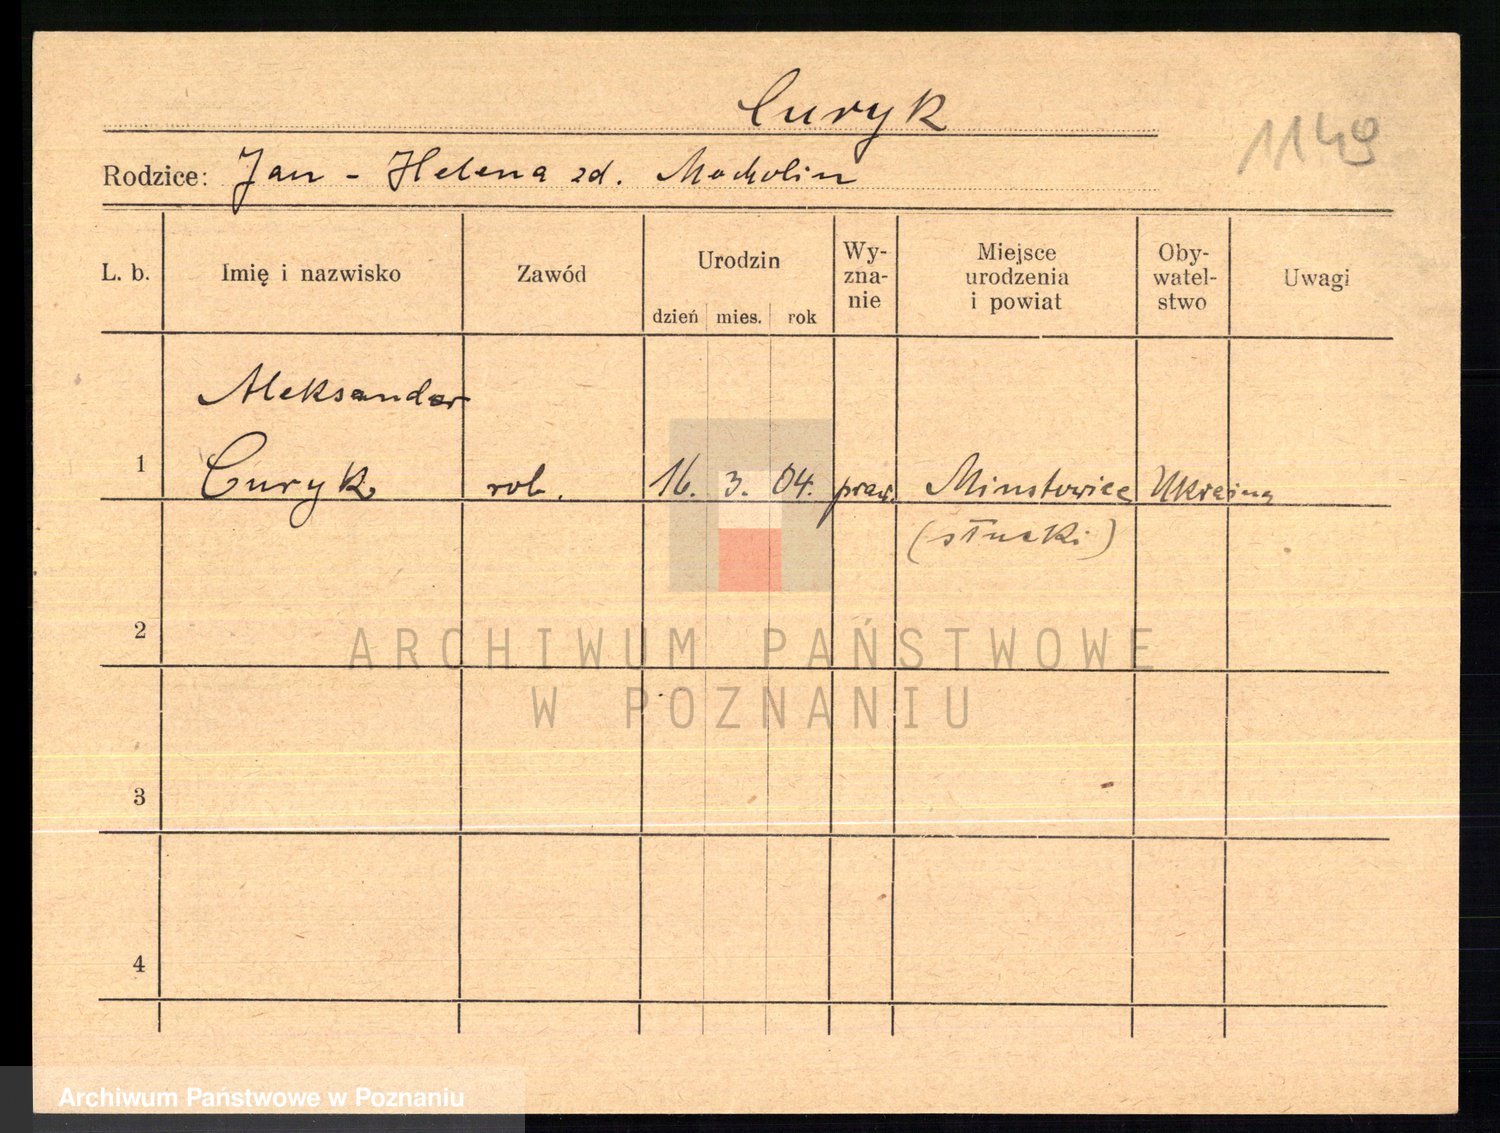 Curyk
1149
Rodzice: Jan - Helena zd. Mocholin
L. b. Imię i nazwisko Zawód Urodzin dzień mies. rok Wy-zna-nie Miejsce urodzenia i powiat Oby-watel-stwo Uwagi
Aleksander
1 Curyk rob. 16. 3. 04. praw. Minstowice Ukraina
(słucki)
2
ARCHIWUM PAŃSTWOWE
W POZNANIU
3
4
Archiwum Państwowe w Poznaniu